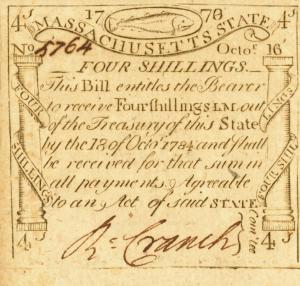 4s 17 78 4s
MASSACHUSETTS STATE
No 5764 Octor. 16
FOUR SHILLINGS.
This Bill entitles the Bearer
to receive Four shillings L.M. out
of the Treasury of this State
by the 18 of Octr. 1784 and shall
be received for that sum in
all payments, Agreeable
to an Act of said STATE
FOUR SHILLINGS
FOUR SHILLINGS
R. Cranch
Comtee
4s 4s